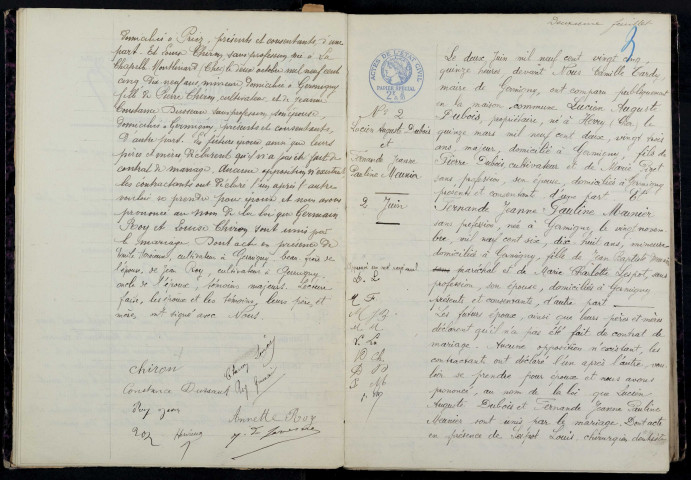 domiciliés à Précy, présents et consentants, d'une
part. Et Louise Chiron, sans profession, née à La
Chapelle Montlinard (Cher) le deux octobre mil neuf cent
cinq, dix neuf ans, mineure, domiciliée à Germigny
fille de Pierre Chiron, cultivateur, et de Jeanne
Constance Dussaud sans profession, son épouse,
domiciliés à Germigny, présents et consentants,
d'autre part. Les futurs époux ainsi que leurs
père et mère déclarent qu'il n'a pas été fait de
contrat de mariage. Aucune opposition n'existant
les contractants ont déclaré l'un après l'autre
vouloir se prendre pour époux et nous avons
prononcé au nom de la loi que Germain
Roy et Louise Chiron sont unis par
le mariage. Dont acte en présence de
cultivateur à Germigny, beau frère de
l'époux, de Jean Roy, cultivateur à Germigny
oncle de l'époux, témoins majeurs. Lecture
faite, les époux et les témoins, leurs père et
mère, ont signé avec Nous.
Chiron
Constance Dussaud Roy
Roy Jean
Anne M. Roy
Roy
Deuxième feuillet
3
ACTES DE L'ETAT CIVIL
PAPIER SPECIAL
N° 2
Lucien Auguste Dubois
et
Fernande Jeanne
Pauline Meunier
2 Juin
Le deux Juin mil neuf cent vingt cinq,
quinze heures devant Nous Camille Tardy,
maire de Germigny, ont comparu publiquement
en la maison commune Lucien Auguste
Dubois, propriétaire, né à Héry, Cher, le
quinze mars mil neuf cent deux, vingt trois
ans, majeur, domicilié à Germigny, fils de
Pierre Dubois cultivateur et de Marie
sans profession, son épouse, domiciliés à Germigny
présents et consentants d'une part. Et
Fernande Jeanne Pauline Meunier
sans profession, née à Germigny, le vingt novem
bre, mil neuf cent six, dix huit ans, mineure
domiciliée à Germigny, fille de Jean Baptiste Meunier
maréchal et de Marie Charlotte Lespot, sans
profession, son épouse, domiciliés à Germigny
présents et consentants, d'autre part
Les futurs époux, ainsi que leurs pères et mères
déclarent qu'il n'a pas été fait de contrat de
mariage. Aucune opposition n'existant, les
contractants ont déclaré l'un après l'autre, vou
loir se prendre pour époux et nous avons
prononcé, au nom de la loi que Lucien
Auguste Dubois et Fernande Jeanne Pauline
Meunier sont unis par le mariage. Dont acte
en présence de Louis, chirurgien dentiste